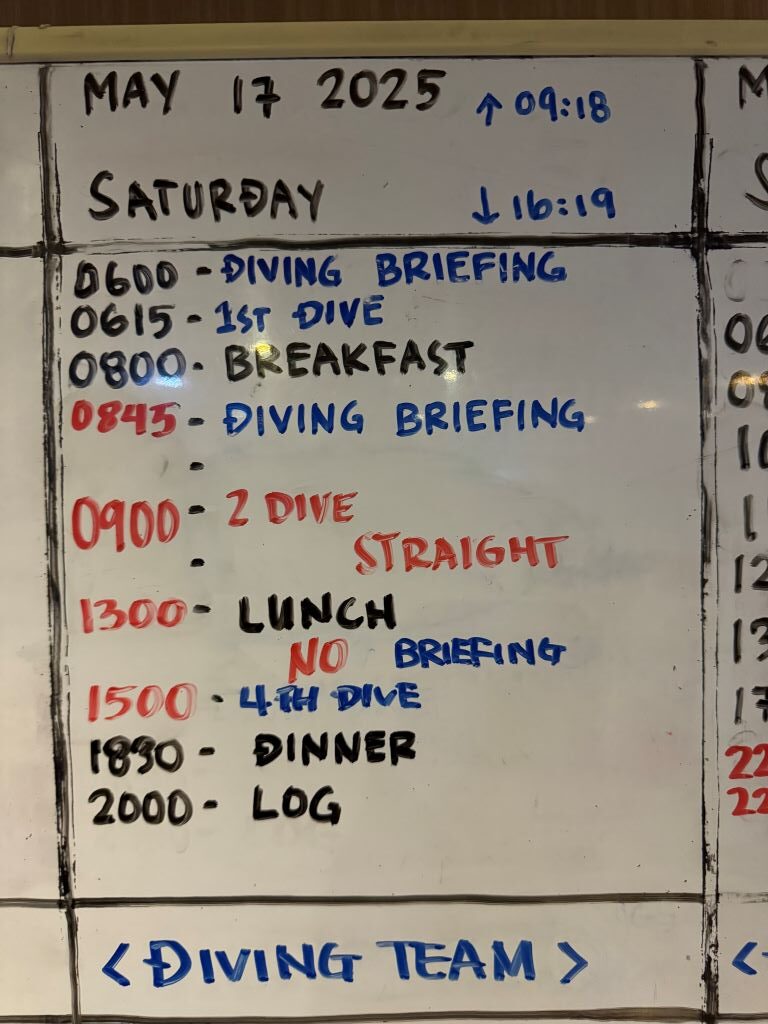 MAY 17 2025 ↑ 09:18
SATURDAY ↓ 16:19
0600 - DIVING BRIEFING
0615 - 1ST DIVE
0800 - BREAKFAST
0845 - DIVING BRIEFING
-
0900 - 2 DIVE
- STRAIGHT
1300 - LUNCH
NO BRIEFING
1500 - 4TH DIVE
1830 - DINNER
2000 - LOG
< DIVING TEAM >